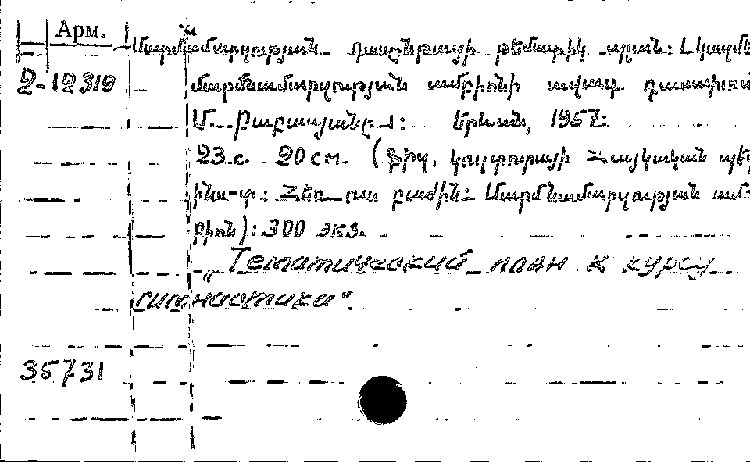 Арм.
Մարմնամարզության դասընթացի թեմատիկ պլան: Լկազմե
2-12319
մարմնամարզության ամբիոնի ավագ դասատու
Մ. Քաբայանը..: Երևան, 1957:
23 с. 20 см. (Ֆիզ. կուլտուրայի Հայկական պետ
ինս-տ: Հեռ. ուս բաժին: Մարմնամարզության ամ-
բիոն): 300 экз.
„Тематический план к курсу
гимнастики".
35731